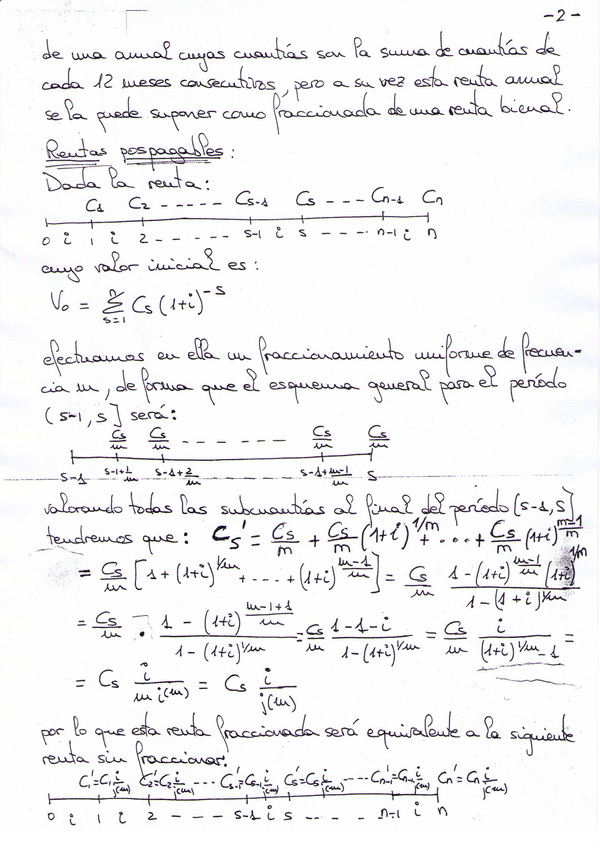 -2-
de una anual cuyas cuantías son la suma de cuantías de
cada 12 meses consecutivos, pero a su vez esta renta anual
se la puede suponer como fraccionada de una renta bienal.
Rentas pospagables:
Dada la renta:
C₁ C₂ ----- Cs-1 Cs --- Cn-1 Cn
0 i 1 i 2 ----- s-1 i s ---- n-1 i n
cuyo valor inicial es:
V₀ = Σ_{s=1}^{n} Cs (1+i)^{-s}
efectuamos en ella un fraccionamiento uniforme de frecuen-
cia m, de forma que el esquema general para el período
(s-1, s] será:
Cs/m Cs/m ------- Cs/m Cs/m
s-1 s-1+1/m s-1+2/m ------- s-1+(m-1)/m s
valorando todas las subcuantías al final del período [s-1, s]
tendremos que: Cs' = Cs/m + Cs/m (1+i)^{1/m} + ... + Cs/m (1+i)^{(m-1)/m}
= Cs/m [1 + (1+i)^{1/m} + .... + (1+i)^{(m-1)/m}] = Cs/m (1-(1+i)^{(m-1)/m} (1+i)^{1/m})/(1-(1+i)^{1/m})
= Cs/m · (1-(1+i)^{(m-1+1)/m})/(1-(1+i)^{1/m}) = Cs/m (1-1-i)/(1-(1+i)^{1/m}) = Cs/m i/((1+i)^{1/m}-1) =
= Cs i/(m i^{(m)}) = Cs i/j(m)
por lo que esta renta fraccionada será equivalente a la siguiente
renta sin fraccionar:
C₁'=C₁ i/j(m) C₂'=C₂ i/j(m) --- Cs-1'=Cs-1 i/j(m) Cs'=Cs i/j(m) --- Cn-1'=Cn-1 i/j(m) Cn'=Cn i/j(m)
0 i 1 i 2 ----- s-1 i s ---- n-1 i n